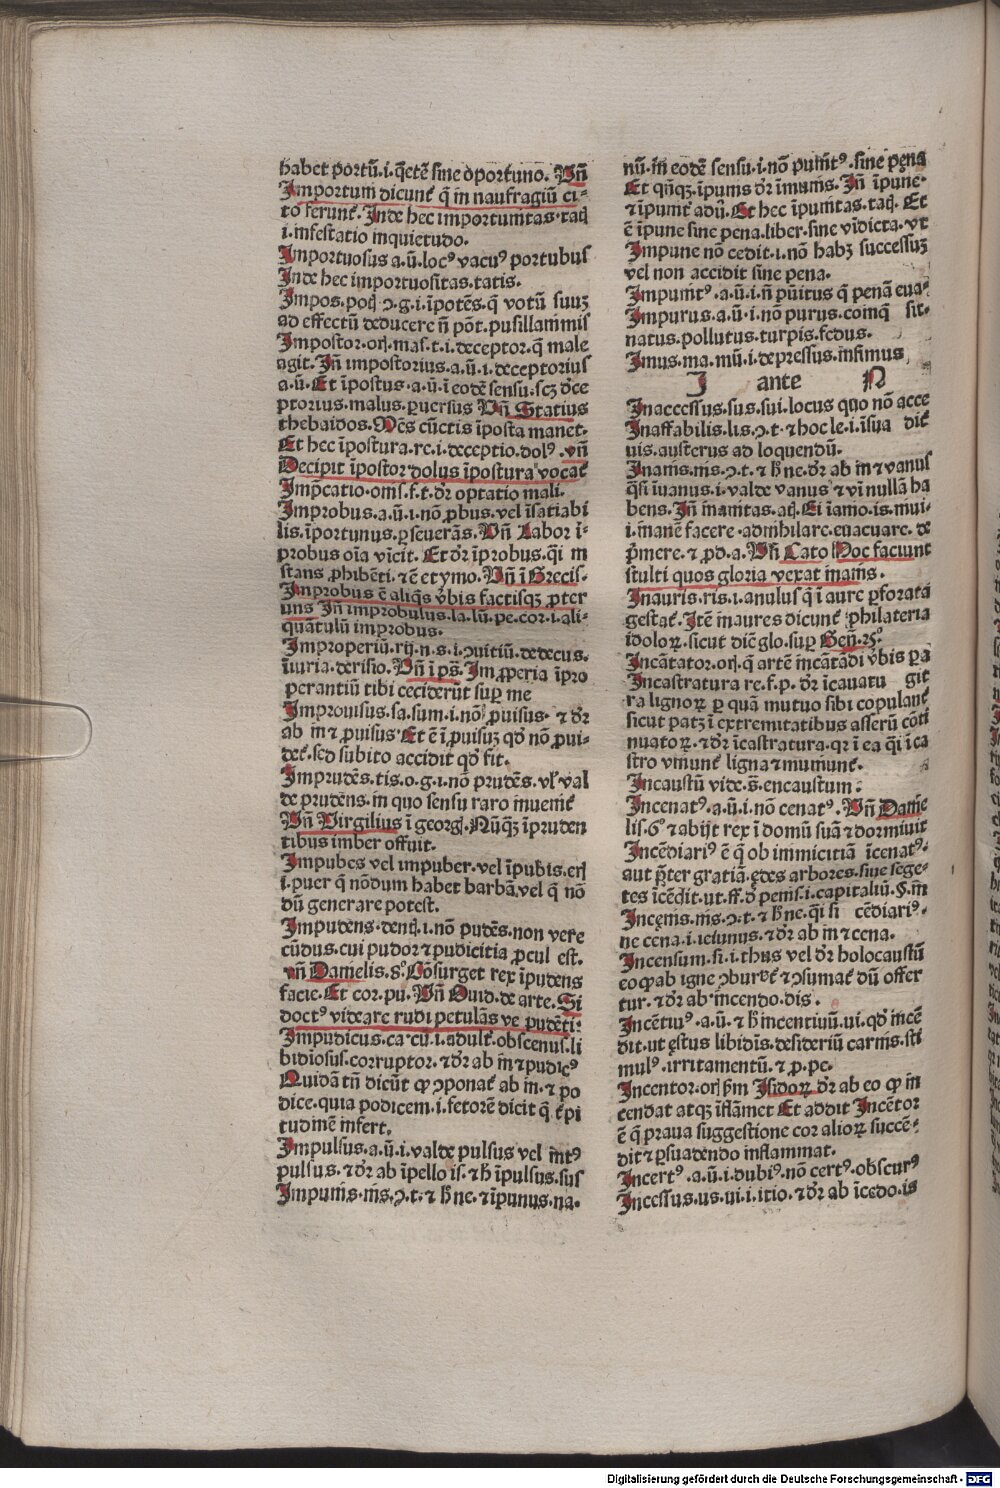 habet portū.i.q̄etē sine oportuno. Vn̄
Importuni dicunt᷑ q̄ in naufragiū ci-
to ferunt᷑. Inde hec importunitas.tatꝭ
i.infestatio inquietudo.
Importuosus a.ū.locꝰ vacuꝰ portubus
Inde hec importuositas.tatis.
Impos.potꝭ ɔ.g.i.īpotēs.q̄ votū suuꝫ
ad effectū deducere n̄ pōt.pusillanimis
Impostor.orꝭ.mas.t.i.deceptor.q̄ male
agit. Jn̄ impostorius.a.ū.i.deceptorius
a.ū. Et īpostus.a.ū.ī eodē sensu.scꝫ dece
ptorius.malus.ꝑuersus Vn̄ Statius
thebaidos. Mēs cūctis īposta manet.
Et hec īpostura.re.i.deceptio.dolꝰ.vn̄
Decipit īpostor dolus īpostura vocat᷑
Imp̄catio.onis.f.t.dr̄ optatio mali.
Improbus.a.ū.i.nō ꝓbus.vel īsatiabi
lis.īportunus.ꝑseuerās. Vn̄ Labor ī-
probus oīa vīcit. Et dr̄ īprobus.q̄i in
stans ꝓhibēti.⁊ ē etymo. Vn̄ ī Grecis.
Improbus ē aliq̄s v̄bis factisqꝫ ꝓter
uus Jn̄ improbulus.la.lū.pe.cor.i.ali-
quātulū improbus.
Improperiū.rij.n.s.i.ɔuitiū.dedecus.
iniuria.derisio. Vn̄ ī ps̄. Imꝓperia īpro
perantiū tibi ceciderūt suꝑ me
Improuisus.sa.sum.i.nō ꝓuisus. ⁊ dr̄
ab in ⁊ ꝓuisus Et ē īꝓuisuꝫ qd̄ nō ꝓui-
det᷑.sed subito accidit qd̄ fit.
Imprudēs.tis.o.g.i.nō prudēs.vl̓ val
de prudēns.in quo sensu raro inuenit᷑
Vn̄ Virgilius ī georgꝭ. Nūqꝫ īpruden
tibus imber offuit.
Impubes vel impuber.vel īpubis.erꝭ
i.puer q̄ nōdum habet barbā.vel q̄ nō
dū generare potest.
Impudens.dentꝭ.i.nō pudēs.non vere
cūdus.cui pudor ⁊ pudicitia ꝓcul est.
vn̄ Danielis.8. Cōsurget rex īpudens
facie. Et cor.pu. Vn̄ Ouid.de arte. Si
doctꝰ videare rudi petulās ve pudēti:
Impudicus.ca.cū.i.adult᷑.obscenus.li
bidiosus.corruptor.⁊ dr̄ ab in ⁊ pudicꝰ
Quidā tn̄ dicūt ꝙ ɔponat᷑ ab in.⁊ po
dice.quia podicem.i.fetorē dicit q̄ t᷑pi
tudinē infert.
Impulsus.a.ū.i.valde pulsus vel int᷑ꝰ
pulsus.⁊ dr̄ ab īpello is.⁊ h̄ īpulsus.sus
Impunis.nis.ɔ.t.⁊ h̄ ne.⁊ īpunus.na.
nū.in eodē sensu.i.nō punit᷑ꝰ.sine pęna
Et qn̄qꝫ.īpunis dr̄ īmunis. Jn̄ īpune.
⁊ īpunit᷑ adū. Et hec īpunitas.tatꝭ. Et
ē īpune sine pena.liber.sine vīdicta.vt
Impune nō cedit.i.nō habꝫ successuꝫ
vel non accidit sine pena.
Impunit᷑ꝰ.a.ū.i.n̄ pūitus q̄ penā eua-
Impurus.a.ū.i.nō purus.coinq̄ sit.
natus.pollutus.turpis.fedus.
Imus.ma.mū.i.depressus.infimus
J ante N
Inaccessus.sus.sui.locus quo nō acce
Inaffabilis.lis.ɔ.t.⁊ hoc le.i.īsua dit᷑
uis.austerus ad loquendū.
Inanis.nis.ɔ.t.⁊ h̄ ne.dr̄ ab in ⁊ vanus
q̄si īuanus.i.valde vanus ⁊ vī nullā ha
bens. Jn̄ inanitas.atꝭ. Et īanio.is.niui-
i.inanē facere.adnihilare.euacuare.de
p̄mere.⁊ ꝓd.a. Vn̄ Cato Hoc faciunt
stulti quos gloria vexat inanis.
Inauris.ris.i.anulus q̄ ī aure ꝑforata
gestat᷑. Itē inaures dicunt᷑ philateria
idoloꝝ.sicut diē glo.suꝑ Gen̄.25.
Incātator.orꝭ.q̄ artē incātādi v̄bis ꝑa
Incastratura re.f.p.dr̄ īcauatu git
ra lignoꝝ ꝑ quā mutuo sibi copulant᷑
sicut patꝫ ī extremitatibus asserū cōti
nuatoꝝ.⁊ dr̄ īcastratura.qr ī ea q̄i ī ca
stro vniunt᷑ ligna ⁊ muniunt᷑.
Incaustū vide.s̄.encaustum:
Incenatꝰ.a.ū.i.nō cenatꝰ. Vn̄ Danie
lis.6° ⁊ abijt rex ī domū suā ⁊ dormiuit
Incēdiariꝰ ē q̄ ob inimicitiā īcenatꝰ.
aut p̄ter gratiā.ędes arbores.siue sege-
tes īcēdit.ut.ff.d̄ penis.i.capitaliū.§.in
Incęnis.nis.ɔ.t.⁊ h̄ ne.q̄i si cēdiariꝰ.
ne cena.i.ieiunus.⁊ dr̄ ab in ⁊ cena.
Incensum.si.i.thus vel dr̄ holocaustū
eo ꝙ ab igne ɔburat᷑ ⁊ ɔsumat᷑ dū offer
tur.⁊ dr̄ ab incendo.dis.
Incētiuꝰ.a.ū.⁊ h̄ incentiuū.ui.qd̄ incē
dit.ut ęstus libidīs.desideriū carnis.sti
mulꝰ.irritamentū.⁊ ꝓ.pe.
Incentor.orꝭ ẜm Isidoꝝ dr̄ ab eo ꝙ in
cendat atqꝫ īflāmet Et addit Incētor
ē q̄ praua suggestione cor alioꝝ succē-
dit ⁊ ꝑsuadendo inflammat.
Incertꝰ.a.ū.i.dubiꝰ.nō certꝰ.obscurꝰ
Incessus.us.ui.i.itio.⁊ dr̄ ab īcedo.is
Digitalisierung gefördert durch die Deutsche Forschungsgemeinschaft - DFG